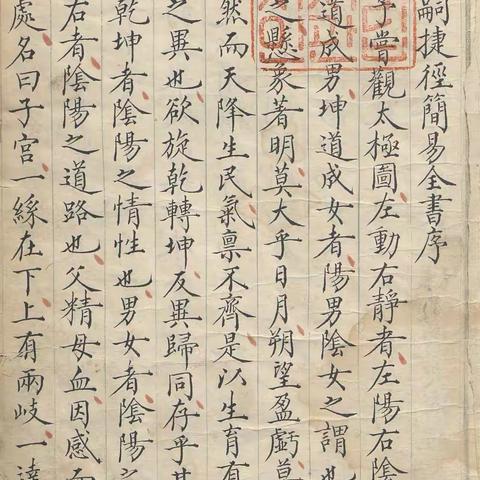 嗣捷徑簡易全書序
嘗觀太極圖左動右靜者左陽右陰
道成男坤道成女者陽男陰女之謂也
懸象著明莫大乎日月朔望盈虧莫
然而天降生民氣禀不齊是以生育有
之異也欲旋乾轉坤反異歸同存乎其
乾坤者陰陽之情性也男女者陰陽之
右者陰陽之道路也父精母血因感而
處名曰子宮一綵在下上有兩岐一達